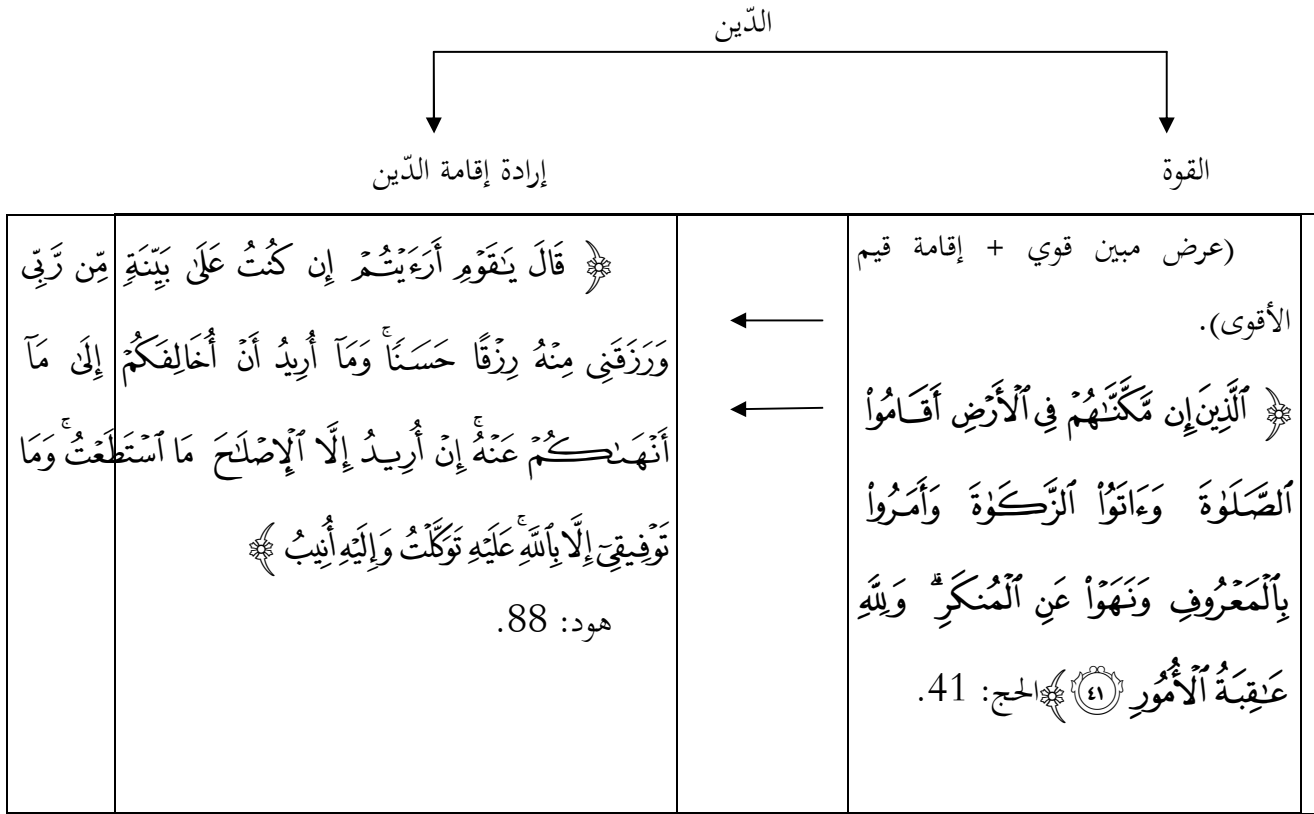 الدّين
القوة
إرادة إقامة الدّين
(عرض مبين قوي + إقامة قيم
الأقوى).
﴿ ٱلَّذِينَ إِن مَّكَّنَّـٰهُمْ فِى ٱلْأَرْضِ أَقَامُوا۟
ٱلصَّلَوٰةَ وَءَاتَوُا۟ ٱلزَّكَوٰةَ وَأَمَرُوا۟
بِٱلْمَعْرُوفِ وَنَهَوْا۟ عَنِ ٱلْمُنكَرِ ۗ وَلِلَّهِ
عَـٰقِبَةُ ٱلْأُمُورِ ٤١ ﴾الحج: 41.
﴿ قَالَ يَـٰقَوْمِ أَرَءَيْتُمْ إِن كُنتُ عَلَىٰ بَيِّنَةٍ مِّن رَّبِّى
وَرَزَقَنِى مِنْهُ رِزْقًا حَسَنًا ۚ وَمَآ أُرِيدُ أَنْ أُخَالِفَكُمْ إِلَىٰ مَآ
أَنْهَىٰكُمْ عَنْهُ ۚ إِنْ أُرِيدُ إِلَّا ٱلْإِصْلَـٰحَ مَا ٱسْتَطَعْتُ ۚ وَمَا
تَوْفِيقِىٓ إِلَّا بِٱللَّهِ ۚ عَلَيْهِ تَوَكَّلْتُ وَإِلَيْهِ أُنِيبُ ﴾
هود: 88.